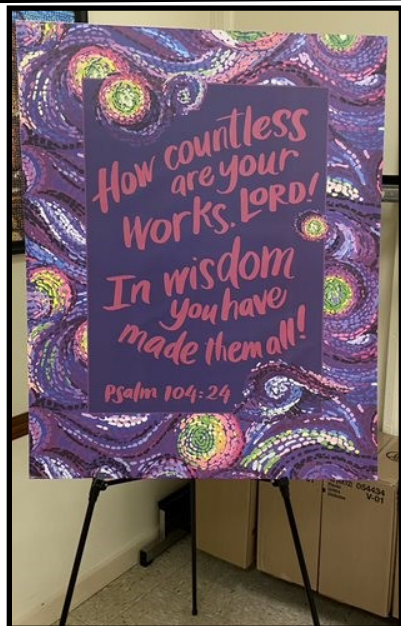 How countless
are your
works, LORD!
In wisdom
you have
made them all!
Psalm 104:24
054434
V-01